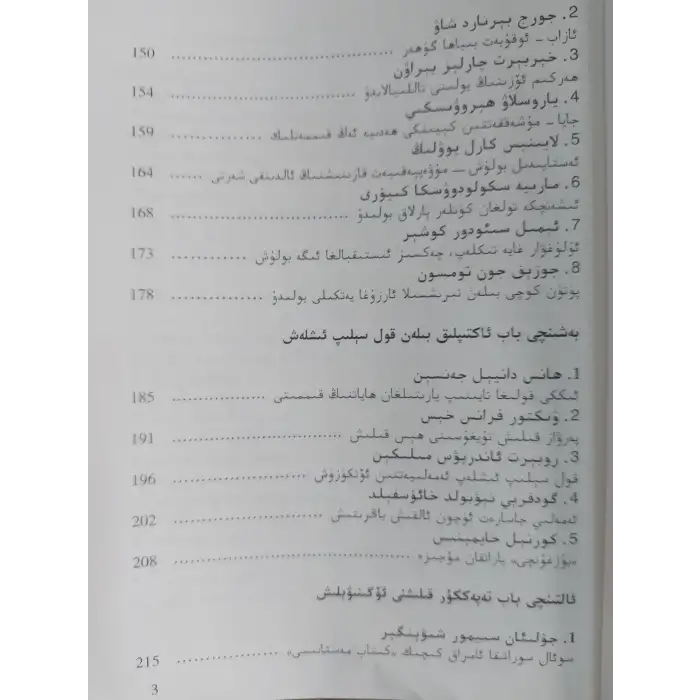 2. جورج بېرنارد شاۋ
ئازاب – ئوقۇبەت بىباھا گۆھەر ........ 150
3. خېربېرت چارلېز بىراۋن
ھەركىم ئۆزىنىڭ يولىنى تاللىيالايدۇ ........ 154
4. ياروسلاۋ ھېروۋىسكىي
جاپا – مۇشەققەتتىن كېيىنكى ھەدىيە ئەڭ قىممەتلىك ........ 159
5. لاينىس كارل پوۋلىڭ
ئەستايىدىل بولۇش — مۇۋەپپەقىيەت قازىنىشنىڭ ئالدىنقى شەرتى ........ 164
6. مارىيە سكولودوۋسكا كىيۇرى
ئىشەنچكە تولغان كۈنلەر پارلاق بولىدۇ ........ 168
7. ئېمىل سىئودور كوشېر
ئۇلۇغۋار غايە تىكلەپ، چەكسىز ئىستىقبالغا ئىگە بولۇش ........ 173
8. جوزېف جون تومسون
پۈتۈن كۈچى بىلەن تىرىشسىلا ئارزۇغا يەتكىلى بولىدۇ ........ 178
بەشىنچى باب ئاكتىپلىق بىلەن قول سېلىپ ئىشلەش
1. ھانس دانىيېل جەنسېن
ئىككى قولىغا تايىنىپ يارىتىلغان ھاياتنىڭ قىممىتى ........ 185
2. ۋىكتور فرانس خېس
پەرۋاز قىلىش تۇيغۇسىنى ھېس قىلىش ........ 191
3. روبېرت ئاندرېۋس مىلىكېن
قول سېلىپ ئىشلەپ ئەمەلىيەتتىن ئۆتكۈزۈش ........ 196
4. گودفرېي نېۋبولد خائۇسفېلد
ئەمەلىي جاسارەت ئۈچۈن ئالقىش ياڭرىتىش ........ 202
5. كورنېل خايمېنىس
«بۇزغۇنچى» ياراتقان مۆجىزە ........ 208
ئالتىنچى باب تەپەككۇر قىلىشنى ئۆگىنىۋېلىش
1. جۇلىئان سىمور شىۋىنگېر
سوئال سوراشقا ئامراق كىچىك «كىتاب مەستانىسى» ........ 215
3